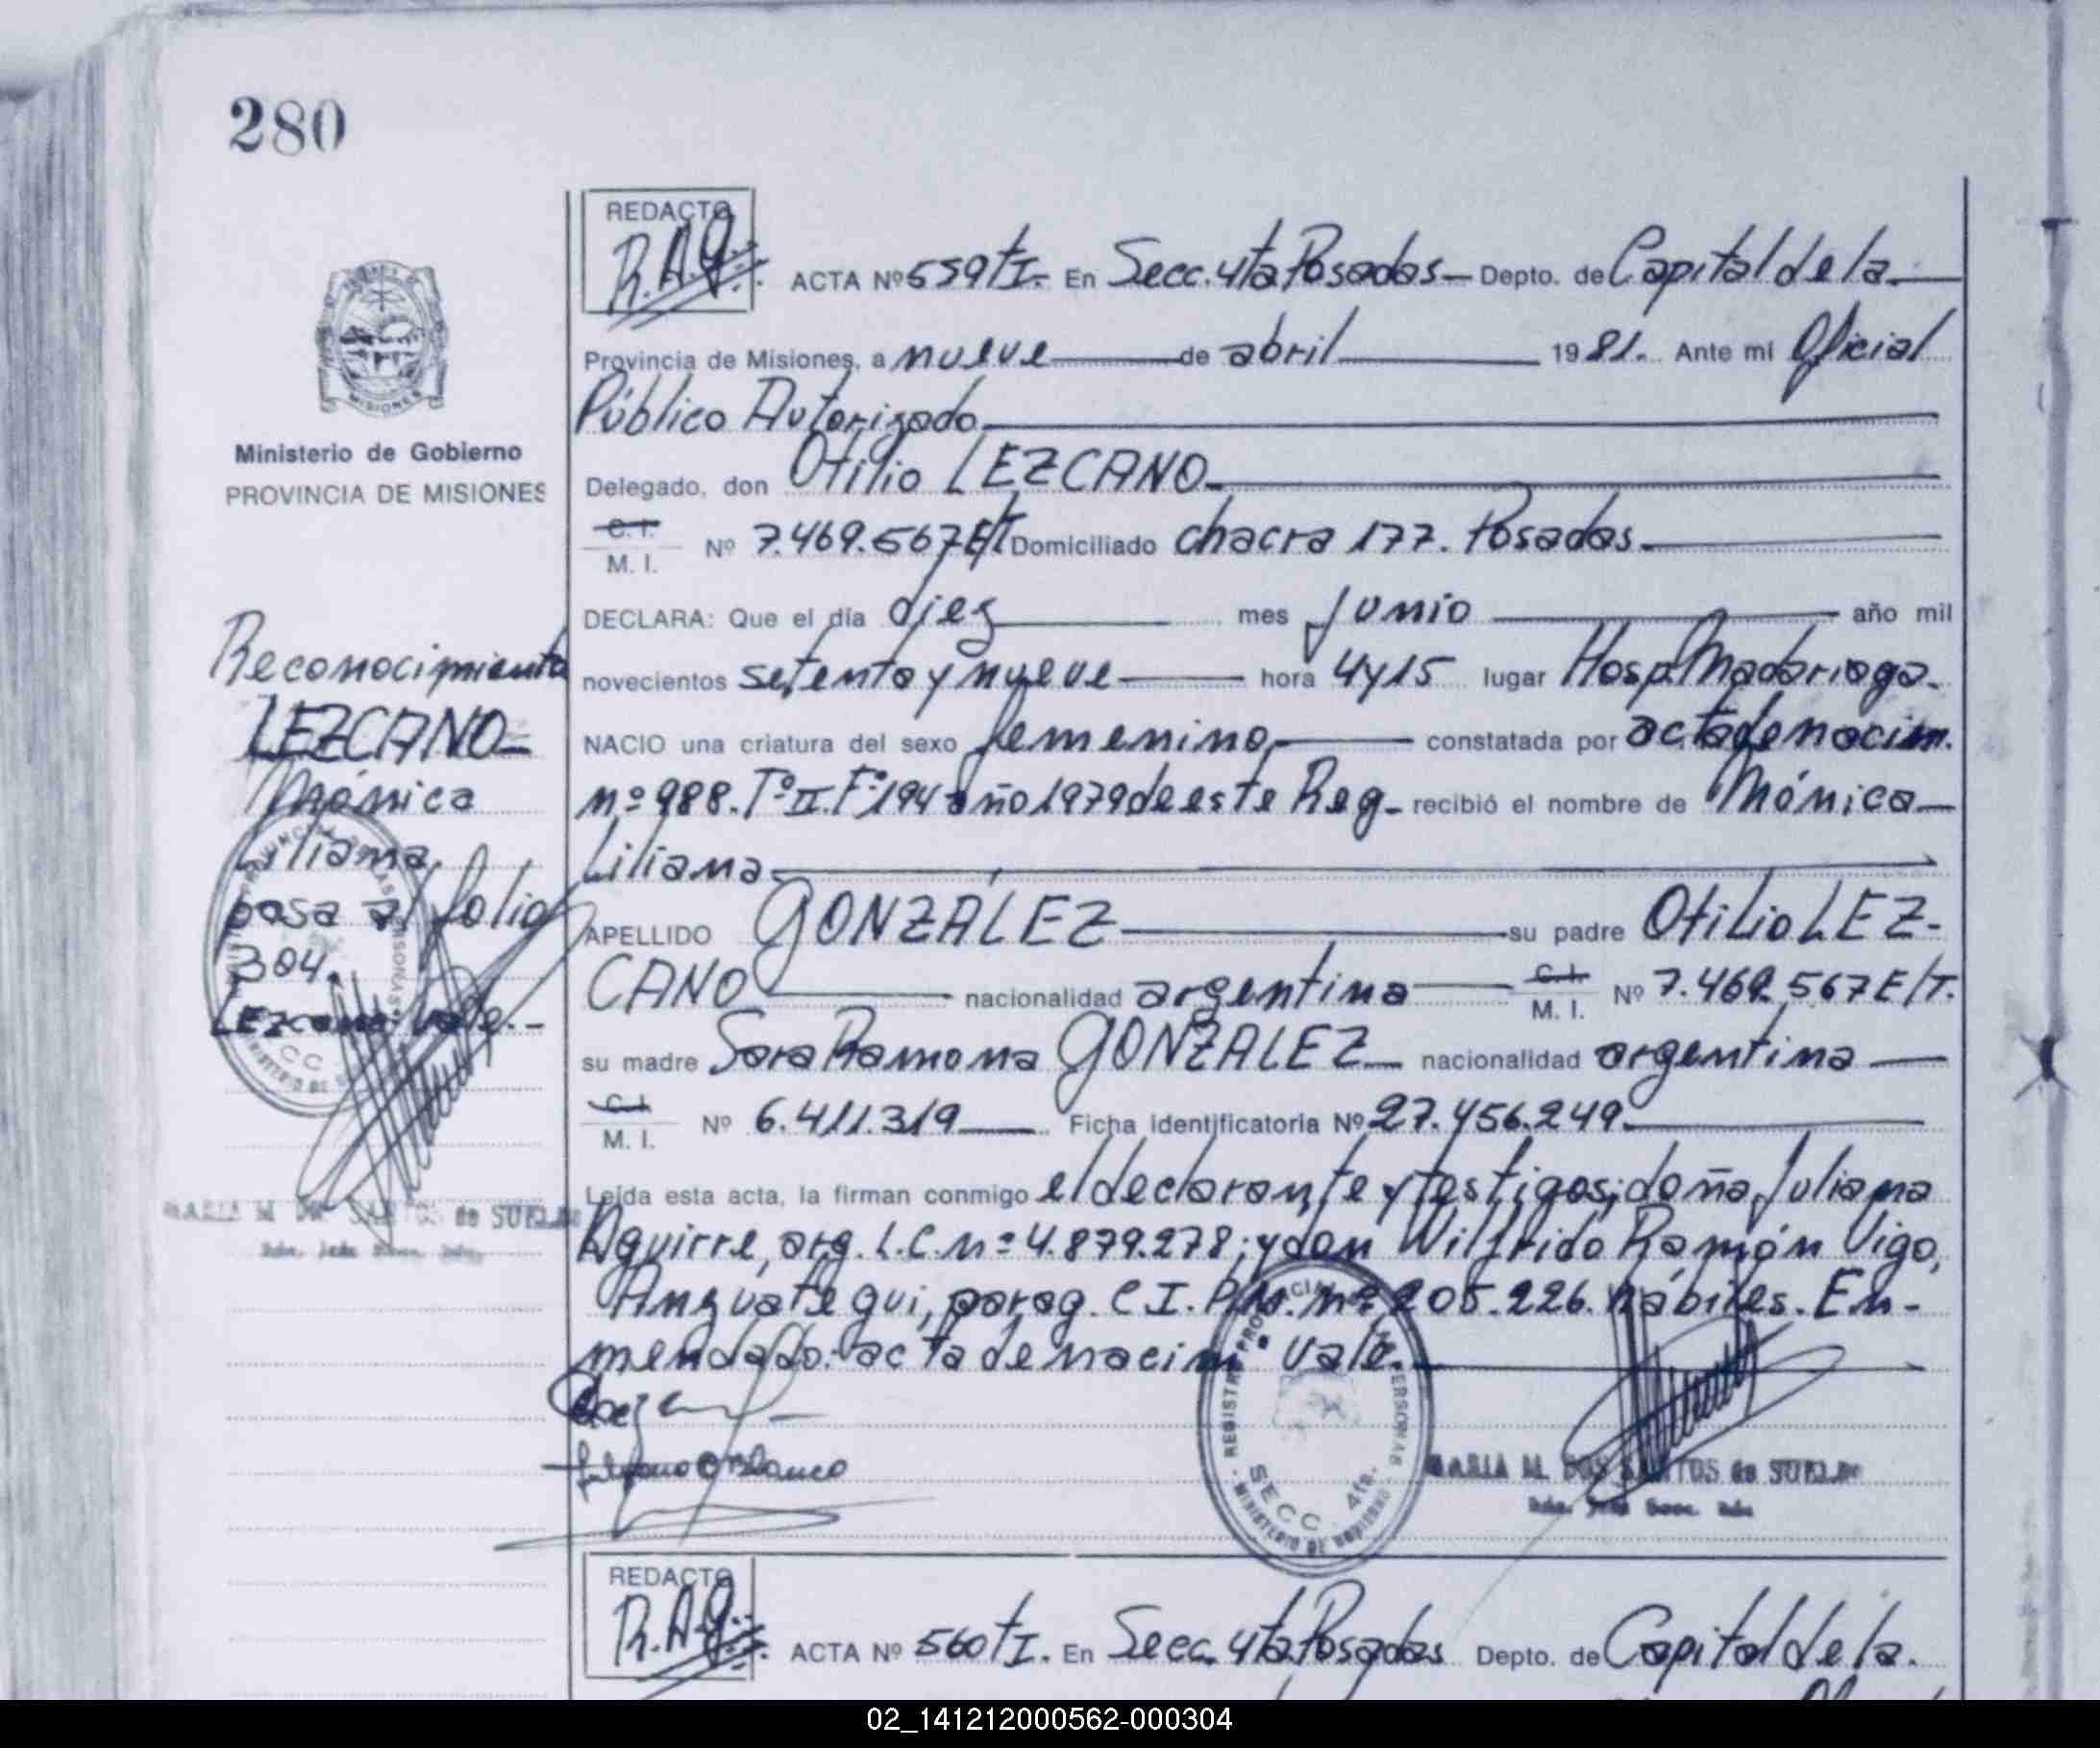 280
REDACTO
R.A.G.
ACTA Nº 559 tI. En Secc. 4ta Posadas Depto. de Capital de la
Provincia de Misiones, a nueve de abril 1981. Ante mi Oficial
Público Autorizado
Ministerio de Gobierno
PROVINCIA DE MISIONES
Delegado, don Otilio LEZCANO
C. I.
M. I. Nº 7.469.567 E/T Domiciliado chacra 177. Posadas.
DECLARA: Que el día diez mes Junio año mil
novecientos setenta y nueve hora 4 y 15 lugar Hosp. Madariaga.
NACIO una criatura del sexo femenino, constatada por acta de nacim.
nº 988. Tº II. Fº 194 año 1979 de este Reg. recibió el nombre de Mónica
Liliana
APELLIDO GONZÁLEZ su padre Otilio LEZ-
CANO nacionalidad argentina C. I. M. I. Nº 7.469.567 E/T.
su madre Sara Ramona GONZALEZ nacionalidad argentina
C. I.
M. I. Nº 6.411.319 Ficha identificatoria Nº 27.456.249.
Leída esta acta, la firman conmigo el declarante y testigos; doña Juliana
Aguirre, arg. L.C. nº 4.879.278; y don Wilfrido Ramón Vigo,
parag. C I. nº 205.226. hábiles. En-
mendado: acta de nacim. Vale.
Reconocimiento
LEZCANO
Mónica
Liliana
pasa al folio
304.
Lezcano: Vale.
MARIA M. DOS SANTOS de SUELDO
SECC. 4ta.
MARIA M. DOS SANTOS de SUELDO
REDACTO
R.A.G.
ACTA Nº 560 tI. En Secc. 4ta Posadas Depto. de Capital de la.
02_141212000562-000304